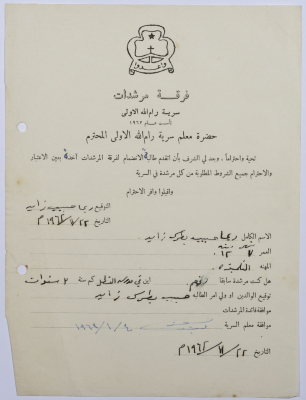 وأعدوا
فرقة مرشدات
سرية رام الله الاولى
تأسست عام ١٩٦٢
حضرة معلم سرية رام الله الاولى المحترم
تحية واحتراماً، وبعد لي الشرف بأن اتقدم طالبة الانضمام لفرقة المرشدات آخذة بعين الاعتبار
والاحترام جميع الشروط المطلوبة من كل مرشدة في السرية
واقبلوا وافر الاحترام
التوقيع ريما حبيب زايد
التاريخ ٢٢/٧/١٩٦٢م
الاسم الكامل ريما حبيب بطرس زايد
العمر ١٢
المهنه
هل كنت مرشدة سابقا نعم اين في كم سنة ٢ سنوات
توقيع الوالدين او ولي امر الطالبة حبيب بطرس زايد
موافقة قائدة المرشدات
موافقة معلم السرية
التاريخ ٢٢/٧/١٩٦٢م